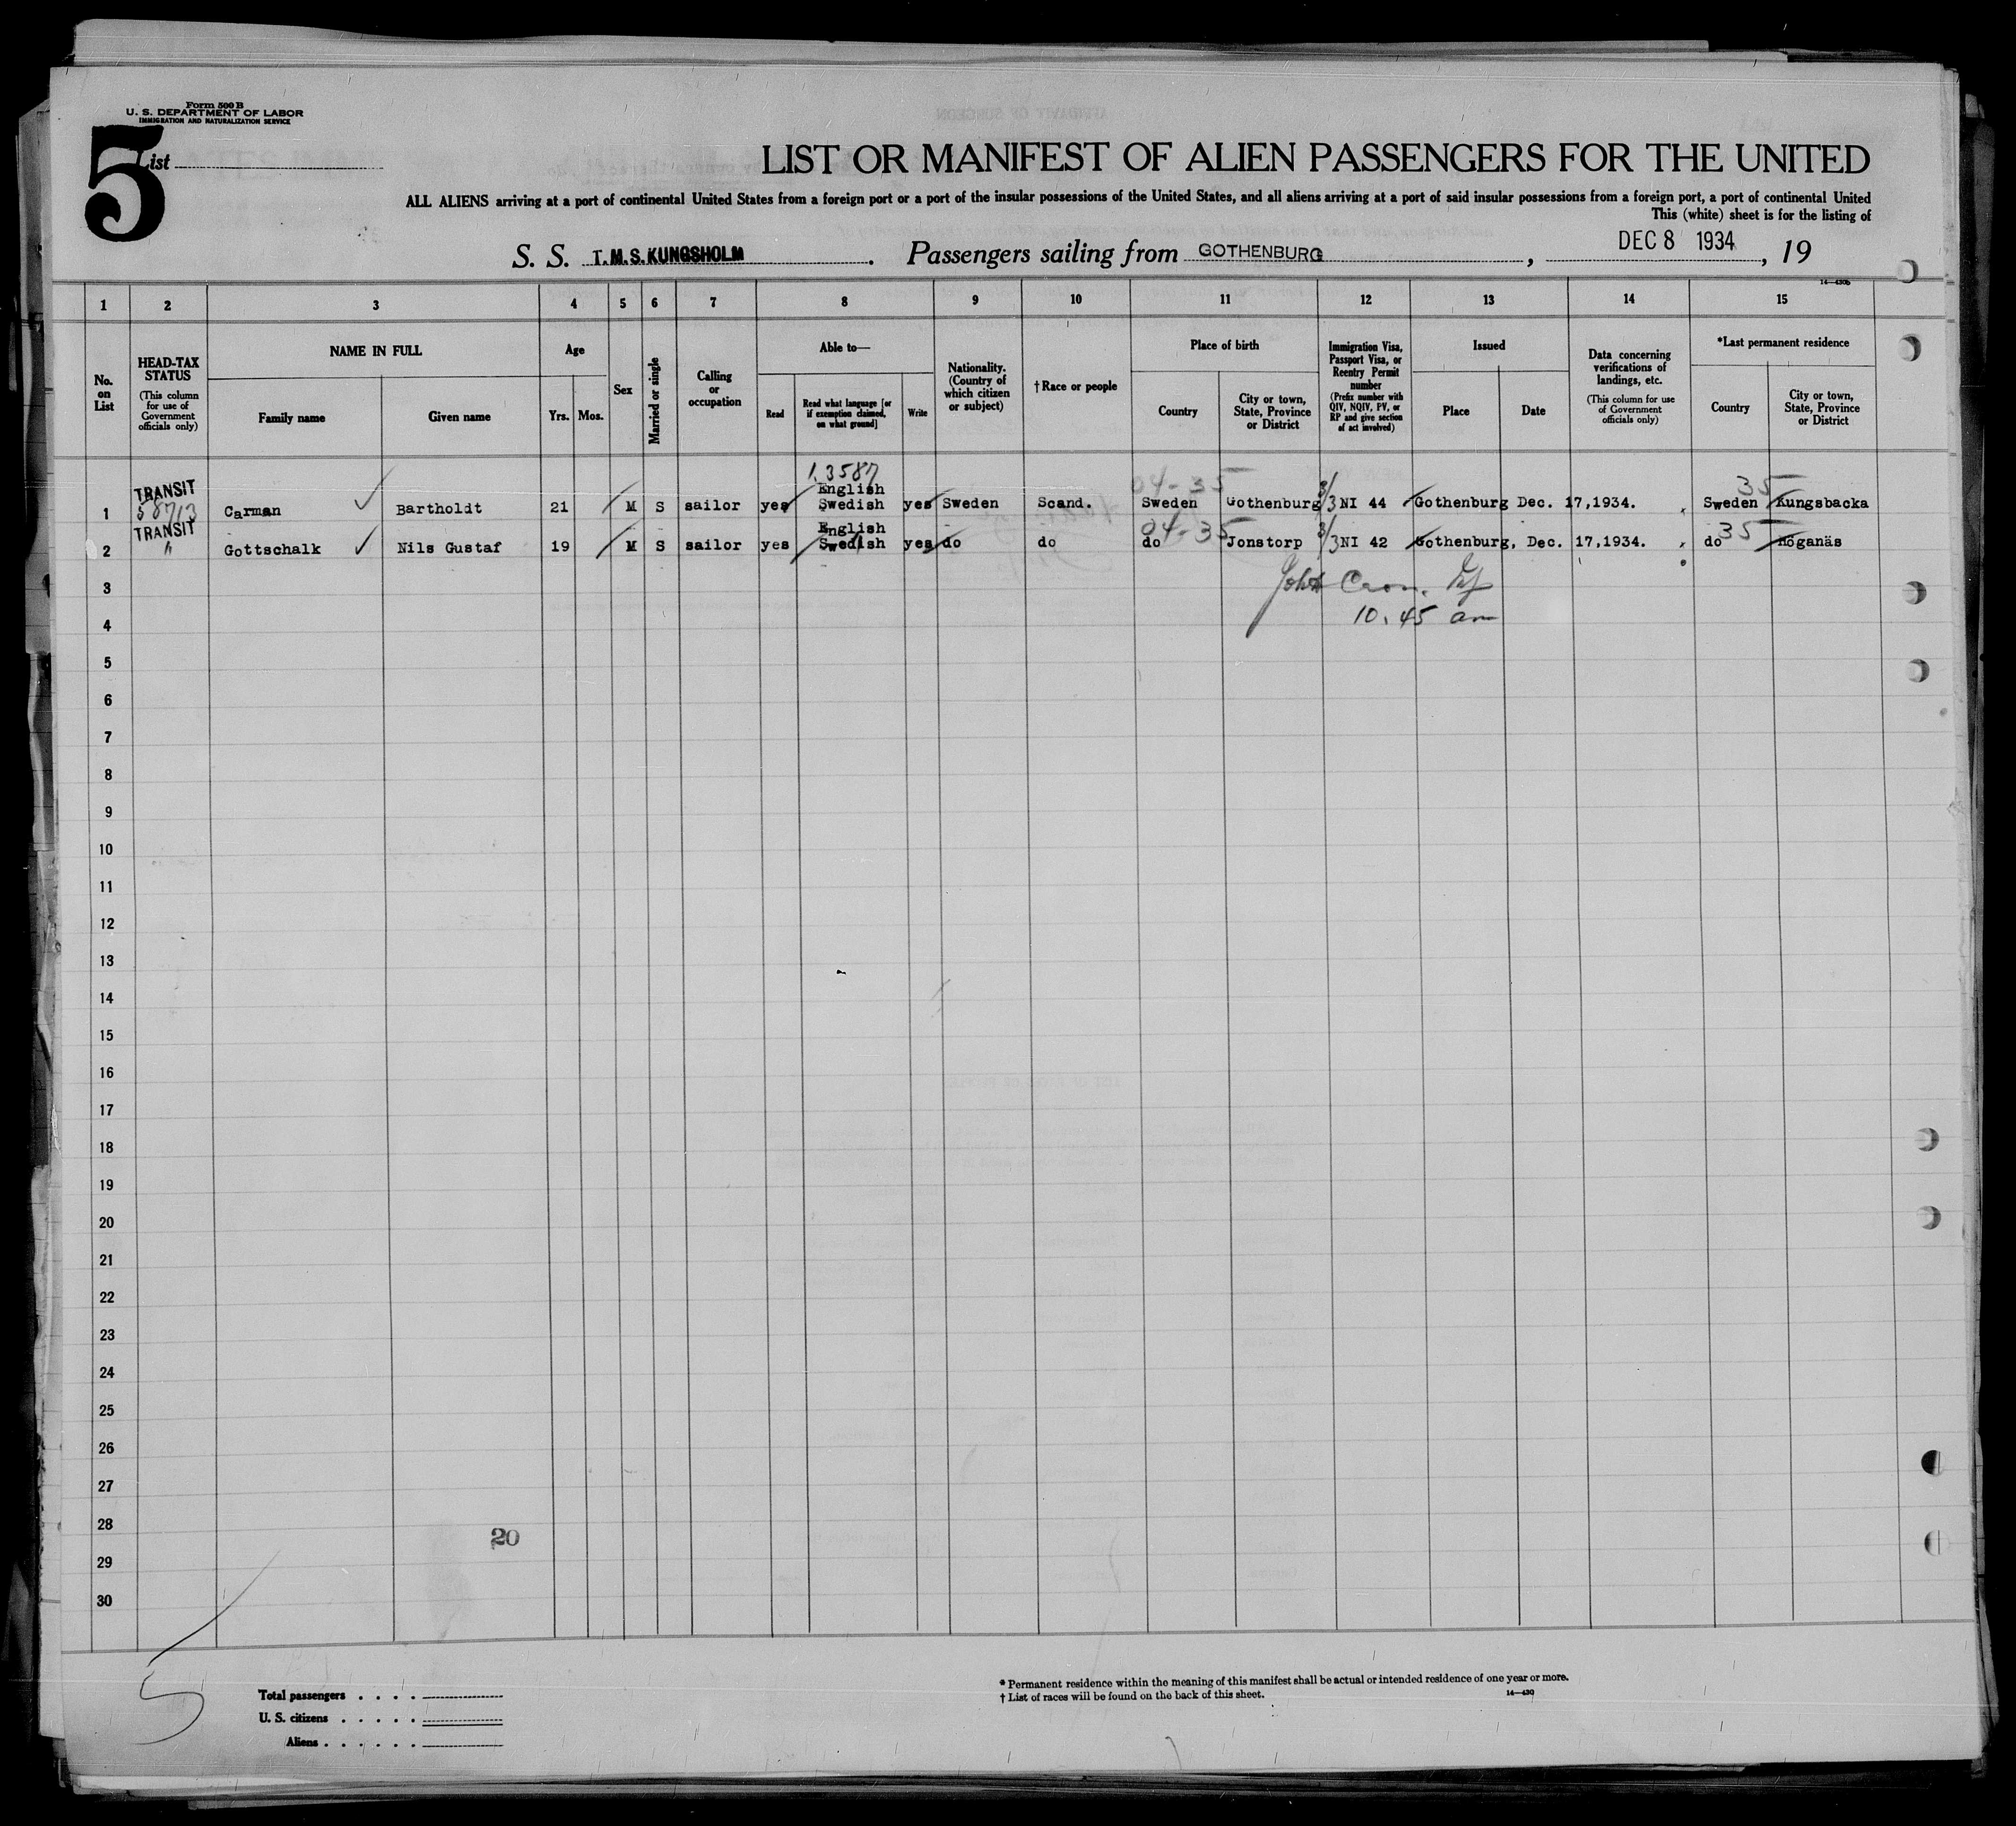 Form 500 B
U. S. DEPARTMENT OF LABOR
IMMIGRATION AND NATURALIZATION SERVICE
5
List
LIST OR MANIFEST OF ALIEN PASSENGERS FOR THE UNITED
ALL ALIENS arriving at a port of continental United States from a foreign port or a port of the insular possessions of the United States, and all aliens arriving at a port of said insular possessions from a foreign port, a port of continental United
This (white) sheet is for the listing of
S. S. T.M.S. KUNGSHOLM. Passengers sailing from GOTHENBURG, DEC 8 1934, 19
14—430b
1 2 3 4 5 6 7 8 9 10 11 12 13 14 15
No. on List
HEAD-TAX STATUS
(This column for use of Government officials only)
NAME IN FULL
Family name
Given name
Age
Yrs. Mos.
Sex
Married or single
Calling or occupation
Able to—
Read
Read what language [or if exemption claimed, on what ground]
Write
Nationality. (Country of which citizen or subject)
†Race or people
Place of birth
Country
City or town, State, Province or District
Immigration Visa, Passport Visa, or Reentry Permit number
(Prefix number with QIV, NQIV, PV, or RP and give section of act involved)
Issued
Place
Date
Data concerning verifications of landings, etc.
(This column for use of Government officials only)
*Last permanent residence
Country
City or town, State, Province or District
13587
04-35
35
TRANSIT
58713
1 Carman Bartholdt 21 M S sailor yes English Swedish yes Sweden Scand. Sweden Gothenburg 3/3 NI 44 Gothenburg Dec. 17,1934. Sweden Kungsbacka
04-35
35
TRANSIT
"
2 Gottschalk Nils Gustaf 19 M S sailor yes English Swedish yes do do do Jonstorp 3/3 NI 42 Gothenburg, Dec. 17,1934. do Höganäs
3
John
4
10.45 am
5
6
7
8
9
10
11
12
13
14
15
16
17
18
19
20
21
22
23
24
25
26
27
28
20
29
30
5
Total passengers
U. S. citizens
Aliens
* Permanent residence within the meaning of this manifest shall be actual or intended residence of one year or more.
† List of races will be found on the back of this sheet.
14—430